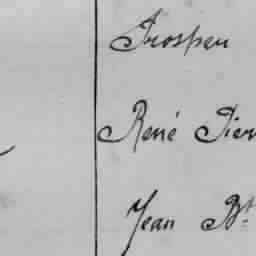 Prosper
René Pier
Jean Bt